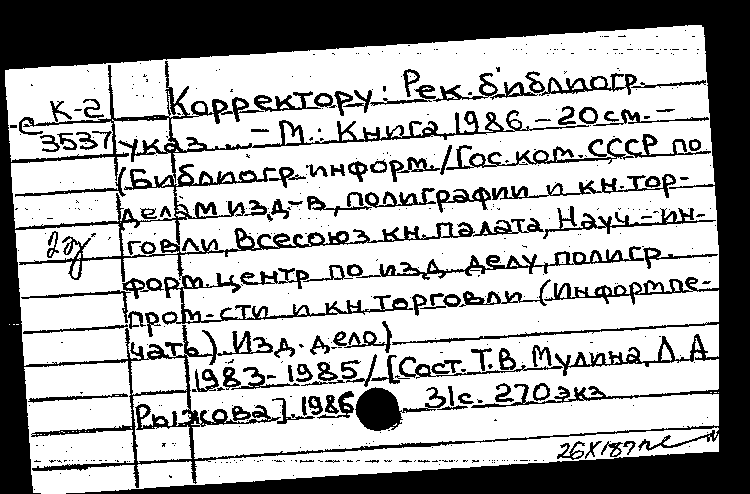 К-2 Корректору: Рек. библиогр.
с 3537 указ. ... – М.: Книга, 1986. – 20 см. –
(Библиогр. информ. / Гос. ком. СССР по
делам изд-в, полиграфии и кн. тор-
говли, Всесоюз. кн. палата, Науч.-ин-
форм. центр по изд. делу, полигр.
пром-сти и кн. торговли (Информпе-
чать). Изд. дело)
1983-1985 / [Сост. Т.В. Мулина, Л.А
Рыжова]. 1986 31с. 270 экз